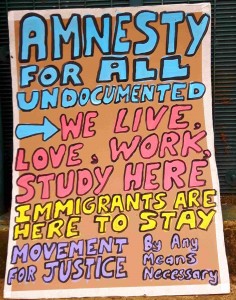 AMNESTY
FOR ALL
UNDOCUMENTED
WE LIVE,
LOVE, WORK,
STUDY HERE
IMMIGRANTS ARE
HERE TO STAY
MOVEMENT
FOR JUSTICE
By Any
Means
Necessary